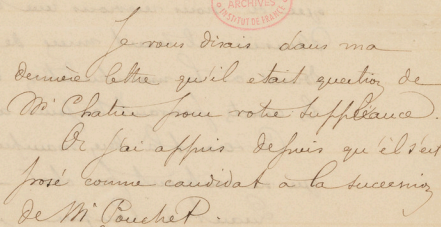 ARCHIVES
INSTITUT DE FRANCE
Je vous disais dans ma
dernière lettre qu'il était question de
Mr Chatin pour votre suppléance.
Or j'ai appris depuis qu'il s'est
posé comme candidat à la succession
de Mr Pouchet.